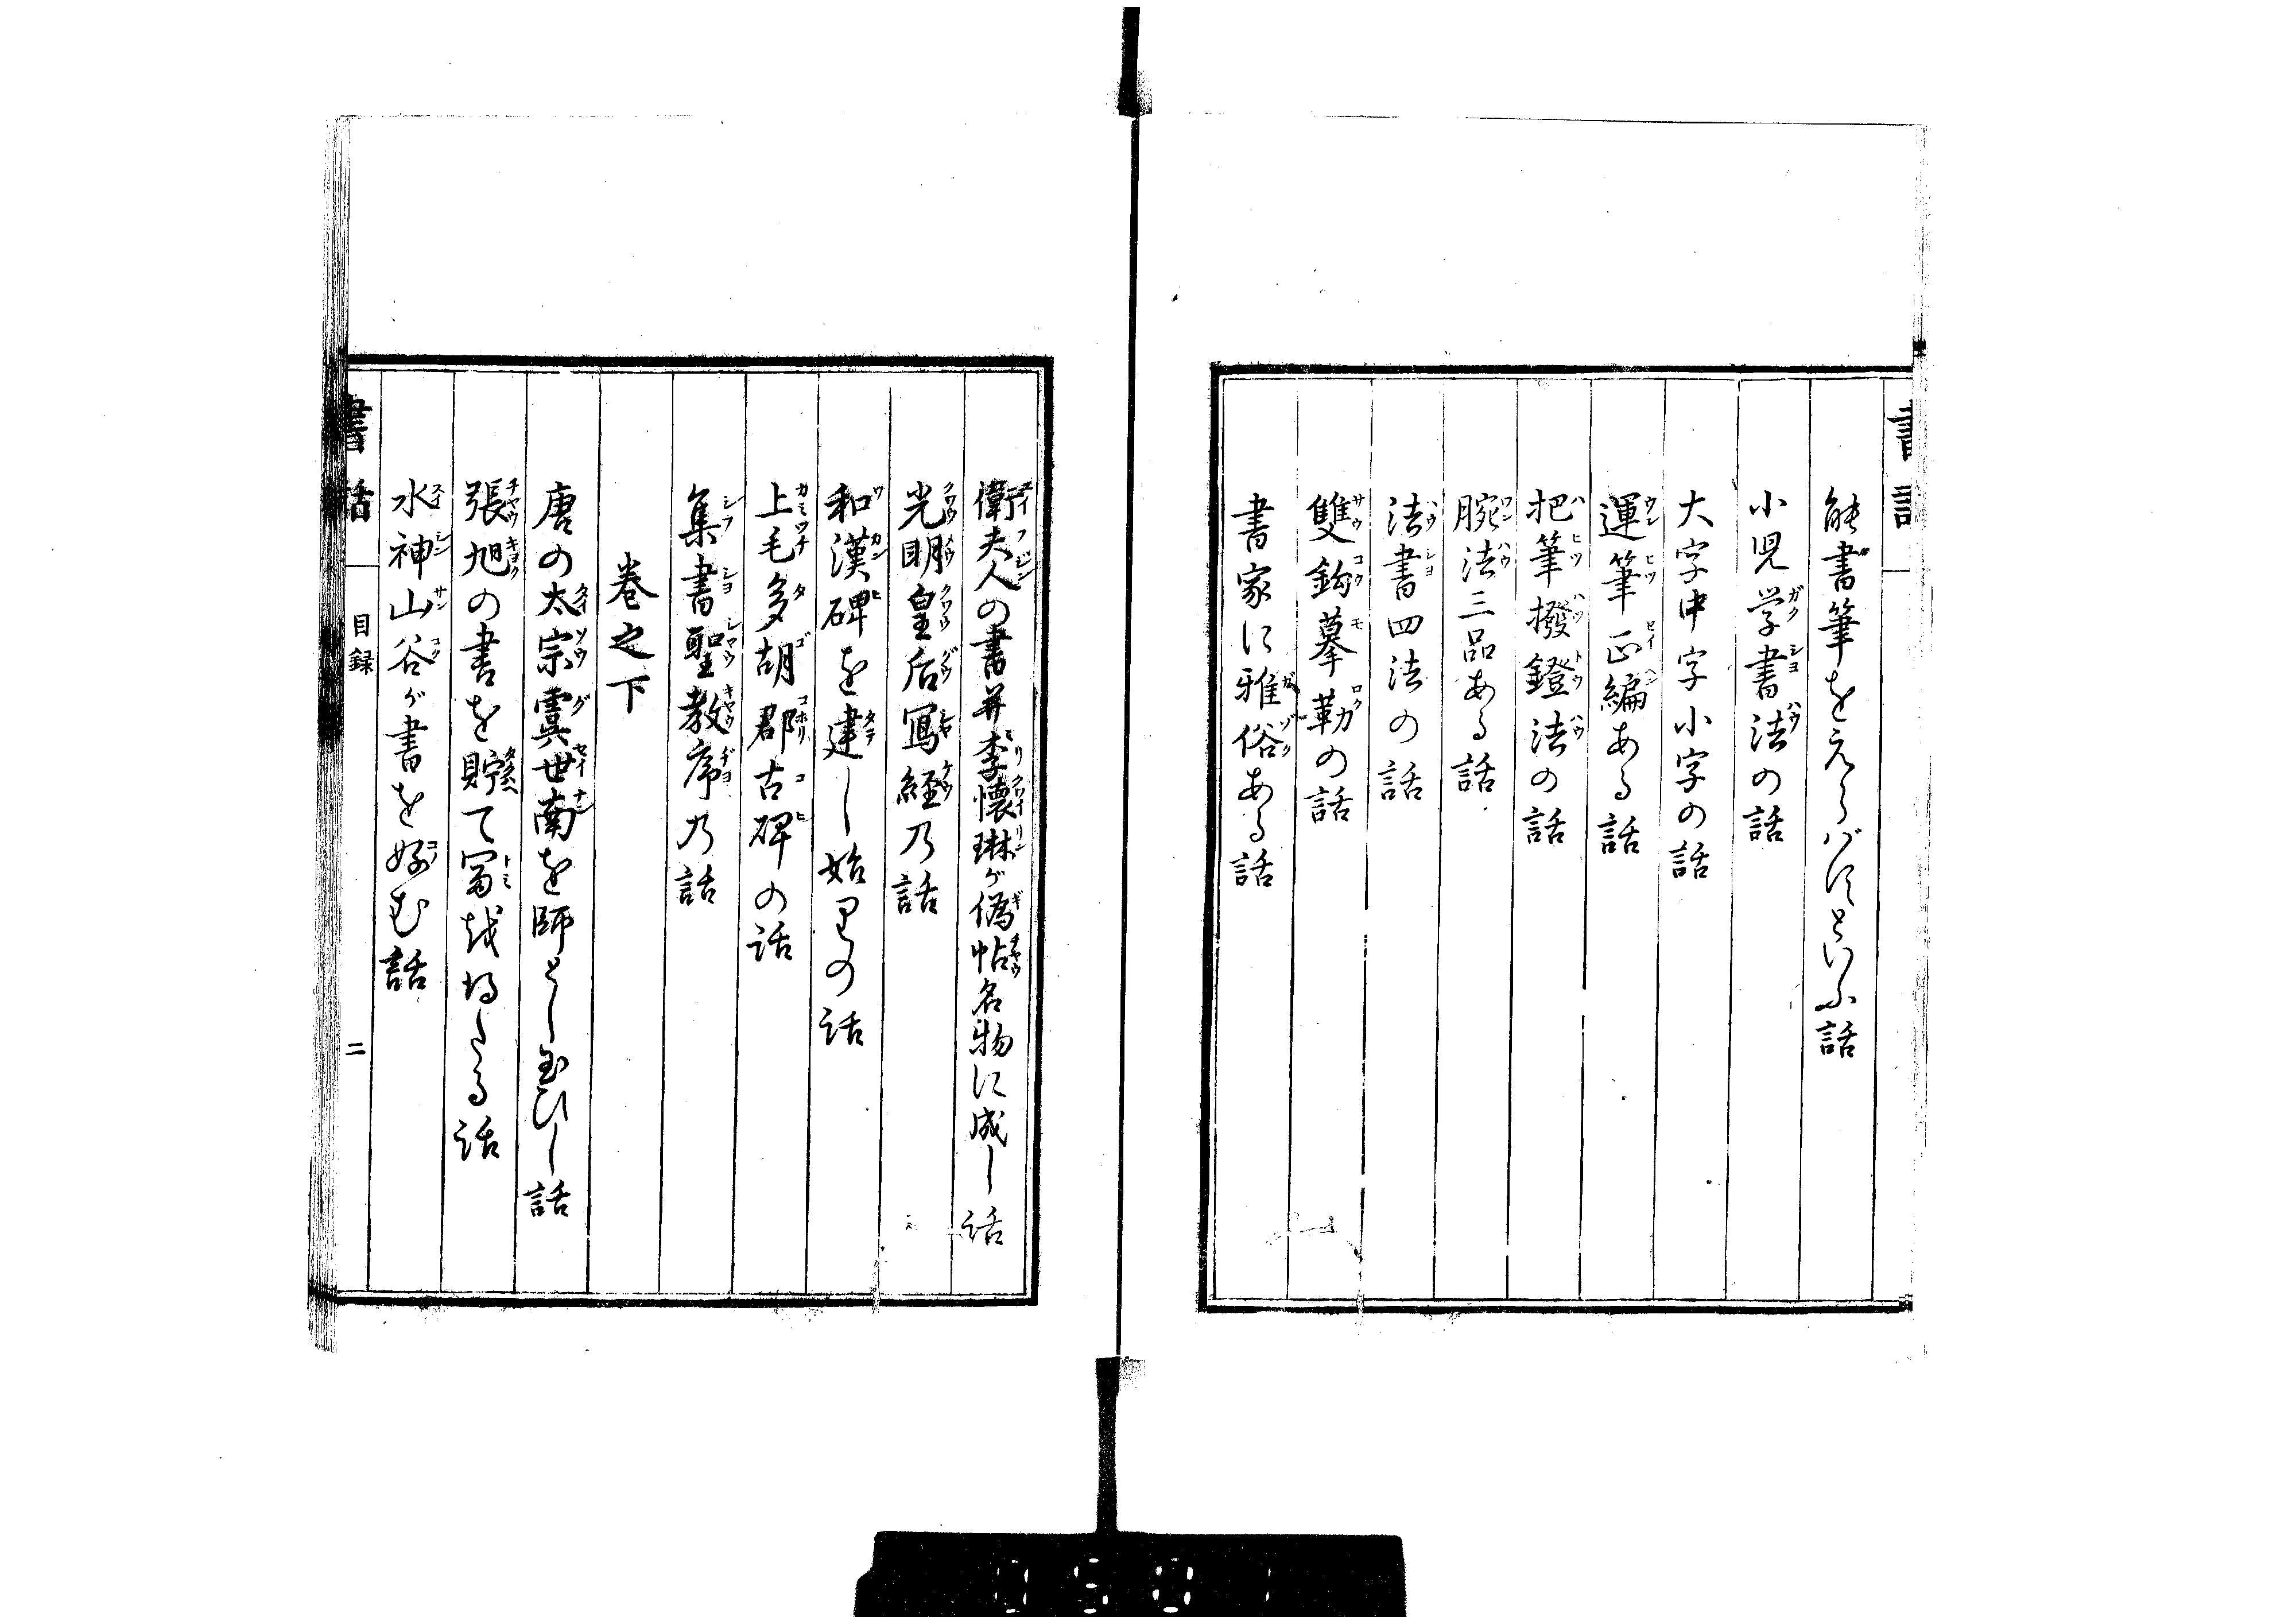 能書筆をえらばずといふ話
小児学書法の話
大字中字小字の話
運筆正編ある話
把筆撥鐙法の話
腕法三品ある話
法書四法の話
雙鈎摹勒の話
書家に雅俗ある話
衛夫人の書并李懐琳が偽帖名物に成し話
光明皇后寫経乃話
和漢碑を建し始里の話
上毛多胡郡古碑の話
集書聖教序乃話
巻之下
唐の太宗虞世南を師とし玉ひし話
張旭の書を貯て冨越得たる話
水神山谷が書を好む話
書話
目録
二